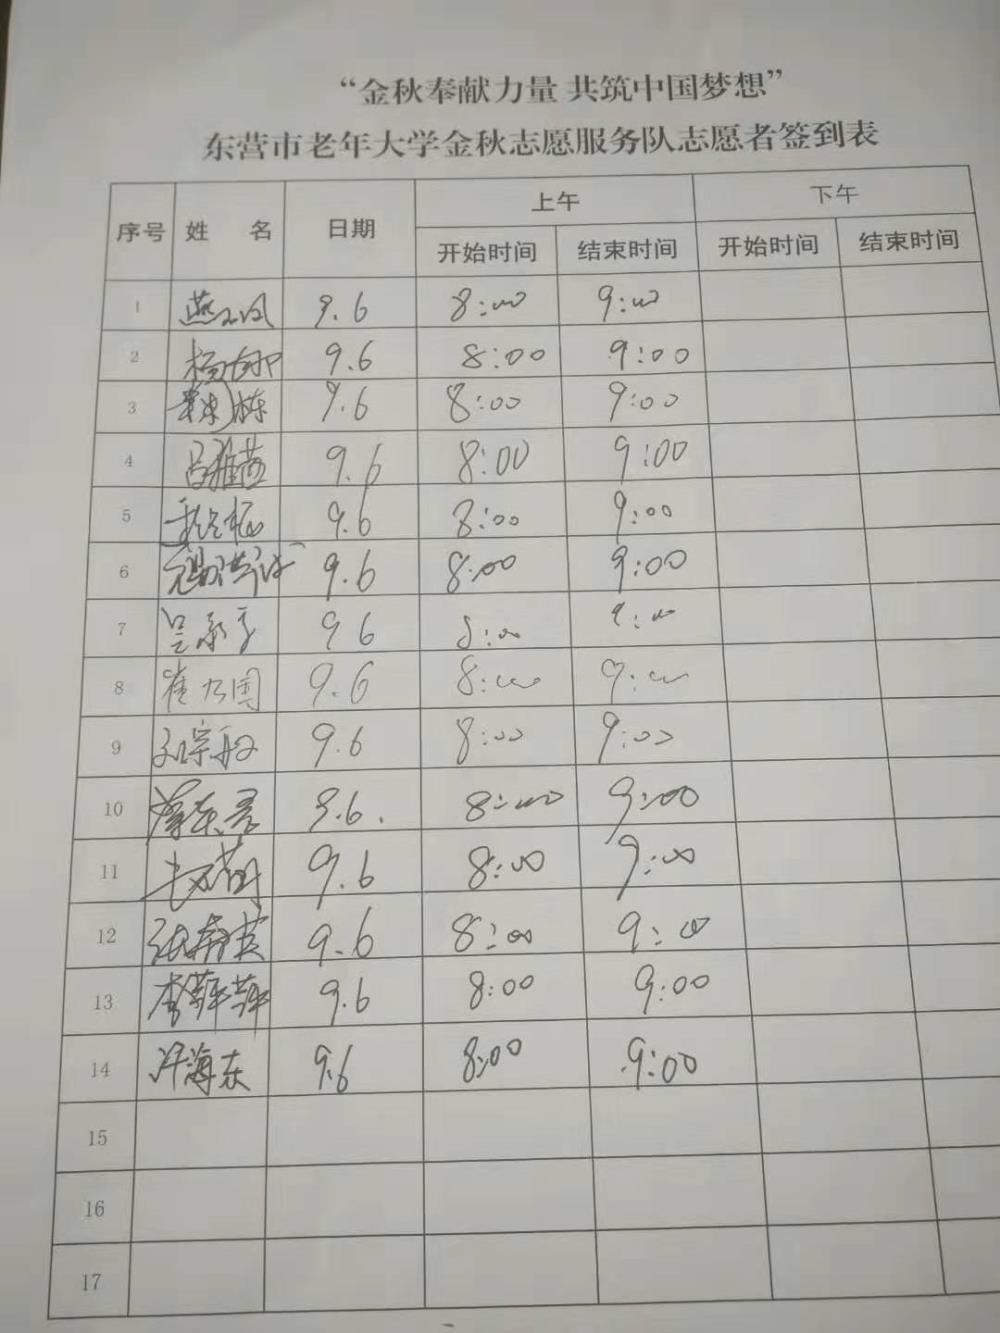 “金秋奉献力量 共筑中国梦想”
东营市老年大学金秋志愿服务队志愿者签到表
序号 姓 名 日期 上午 下午
开始时间 结束时间 开始时间 结束时间
1 9.6 8:00 9:00
2 9.6 8:00 9:00
3 9.6 8:00 9:00
4 吕雅茹 9.6 8:00 9:00
5 9.6 8:00 9:00
6 9.6 8:00 9:00
7 9.6 8:00 9:00
8 崔乃国 9.6 8:00 9:00
9 9.6 8:00 9:00
10 9.6. 8:00 9:00
11 9.6 8:00 9:00
12 9.6 8:00 9:00
13 李萍萍 9.6 8:00 9:00
14 许海东 9.6 8:00 9:00
15
16
17